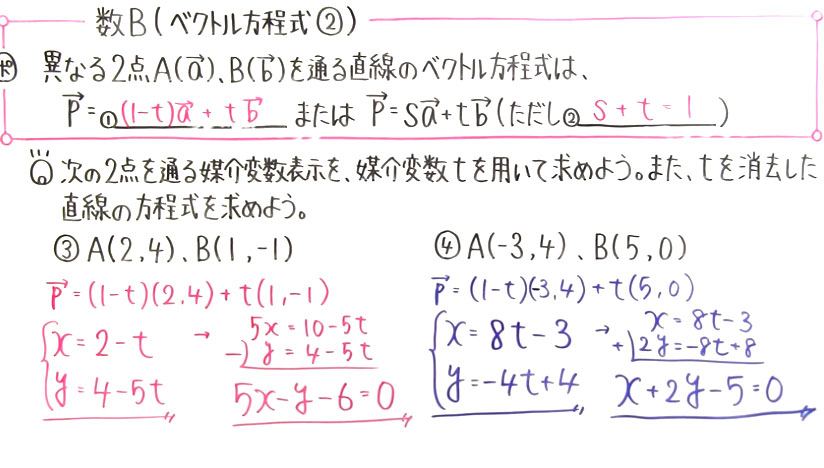 数B(ベクトル方程式②)
ポ 異なる2点A(a→)、B(b→)を通る直線のベクトル方程式は、
p→=①(1-t)a→+tb→ または p→=sa→+tb→(ただし②s+t=1)
Q 次の2点を通る媒介変数表示を、媒介変数tを用いて求めよう。また、tを消去した
直線の方程式を求めよう。
③A(2,4)、B(1,-1)
p→=(1-t)(2,4)+t(1,-1)
{x=2-t → 5x=10-5t
y=4-5t -)y=4-5t
5x-y-6=0
④A(-3,4)、B(5,0)
p→=(1-t)(-3,4)+t(5,0)
{x=8t-3 → x=8t-3
y=-4t+4 +)2y=-8t+8
x+2y-5=0